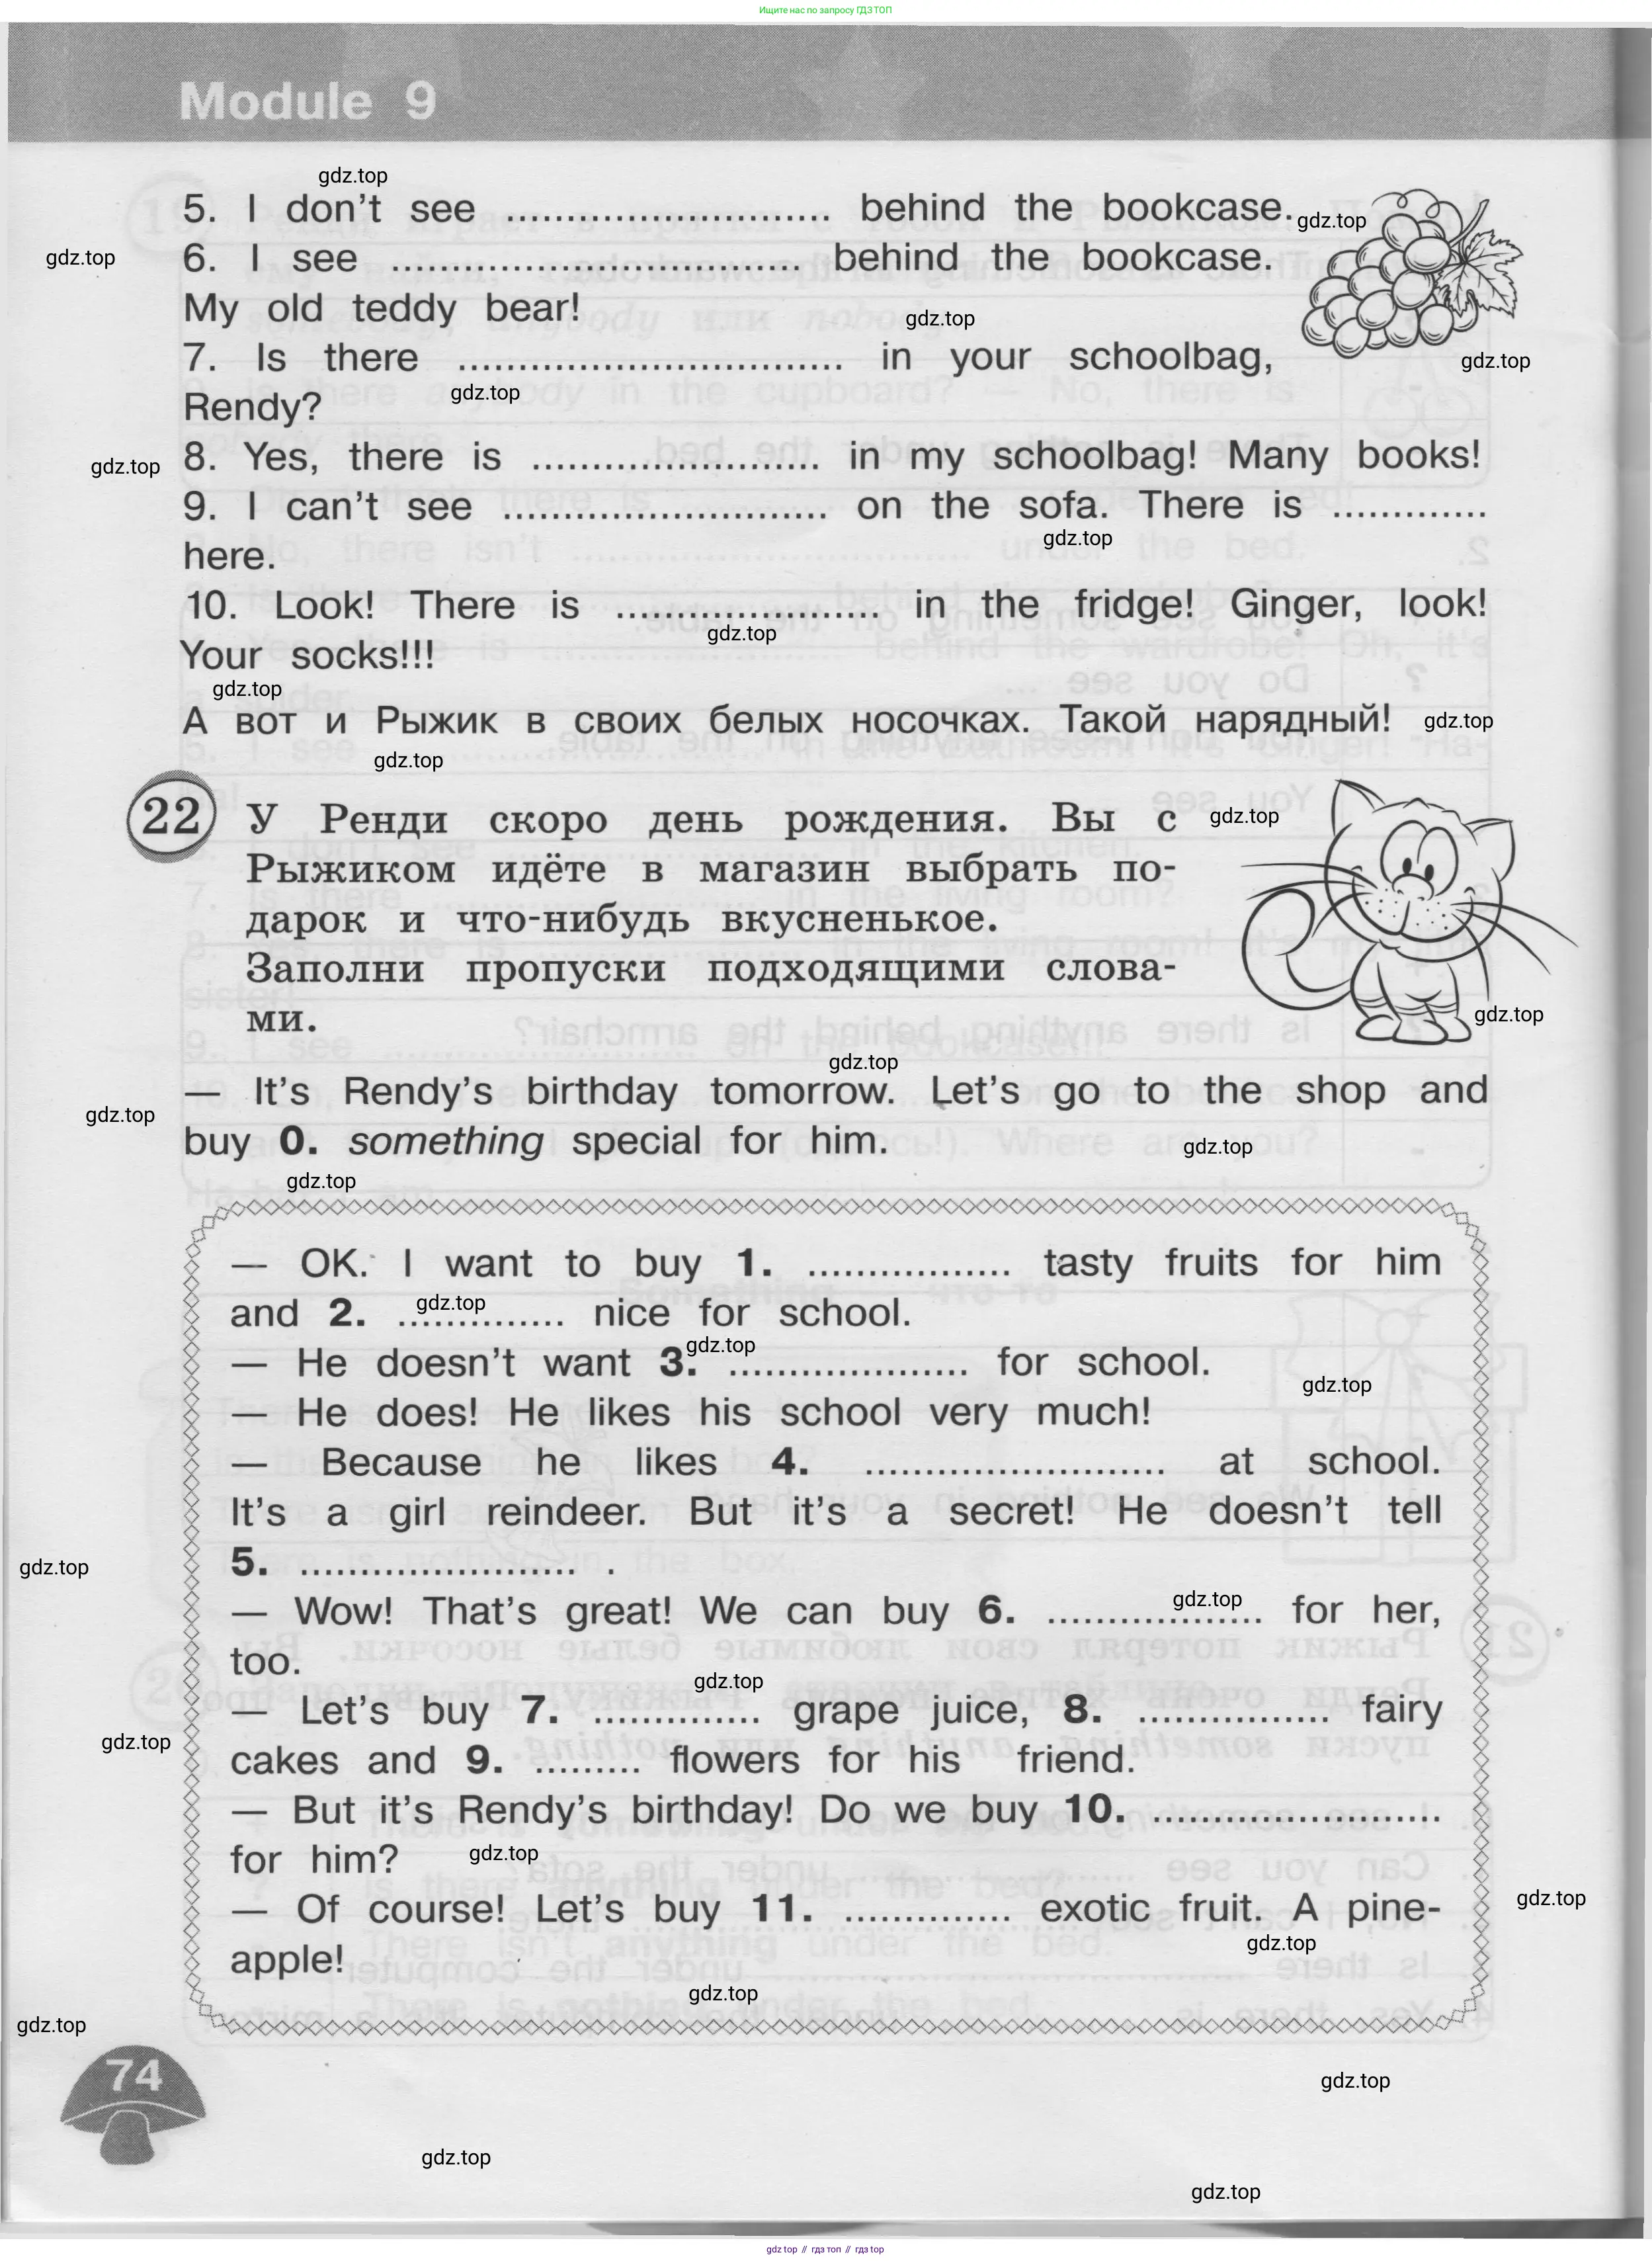 Ищите нас по запросу ГДЗ ТОП
Module 9
gdz.top
5. I don't see ........................... behind the bookcase.
gdz.top
gdz.top
6. I see .................................. behind the bookcase.
My old teddy bear!
gdz.top
7. Is there ................................ in your schoolbag,
gdz.top
gdz.top
Rendy?
gdz.top
8. Yes, there is ........................ in my schoolbag! Many books!
9. I can't see ........................... on the sofa. There is .............
gdz.top
here.
10. Look! There is ...................... in the fridge! Ginger, look!
gdz.top
Your socks!!!
gdz.top
А вот и Рыжик в своих белых носочках. Такой нарядный!
gdz.top
gdz.top
22 У Ренди скоро день рождения. Вы с
gdz.top
Рыжиком идёте в магазин выбрать по-
дарок и что-нибудь вкусненькое.
Заполни пропуски подходящими слова-
ми.
gdz.top
gdz.top
— It's Rendy's birthday tomorrow. Let's go to the shop and
gdz.top
buy 0. something special for him.
gdz.top
gdz.top
— OK. I want to buy 1. ................. tasty fruits for him
gdz.top
and 2. .............. nice for school.
gdz.top
— He doesn't want 3. .................... for school.
gdz.top
— He does! He likes his school very much!
— Because he likes 4. ......................... at school.
It's a girl reindeer. But it's a secret! He doesn't tell
gdz.top
5. ....................... .
gdz.top
— Wow! That's great! We can buy 6. .................. for her,
too.
gdz.top
— Let's buy 7. .............. grape juice, 8. ................ fairy
gdz.top
cakes and 9. ......... flowers for his friend.
— But it's Rendy's birthday! Do we buy 10. ........................
for him?
gdz.top
gdz.top
— Of course! Let's buy 11. .............. exotic fruit. A pine-
gdz.top
apple!
gdz.top
gdz.top
74
gdz.top
gdz.top
gdz.top
gdz top // гдз топ // гдз top